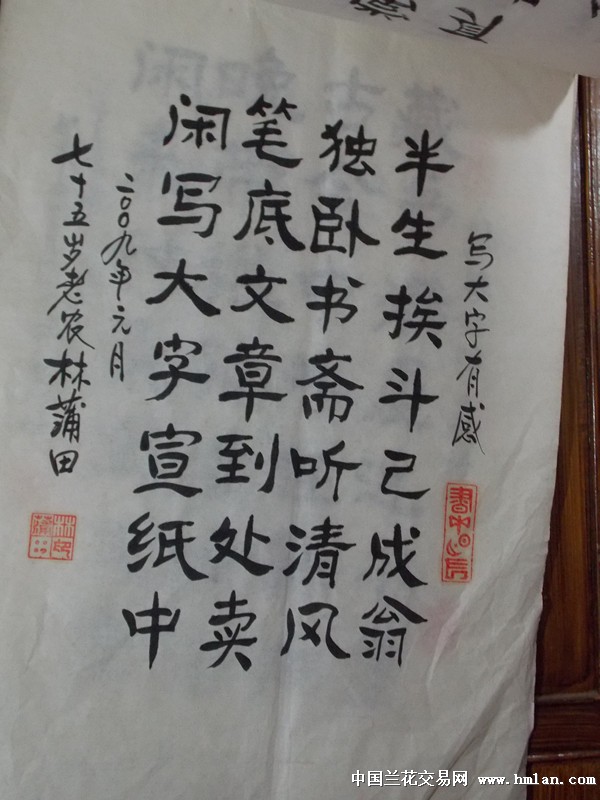 写大字有感
半生挨斗已成翁
独卧书斋听清风
笔底文章到处卖
闲写大字宣纸中
二〇〇九年元月
七十五岁老农林蒲田
中国兰花交易网 www.hmlan.com